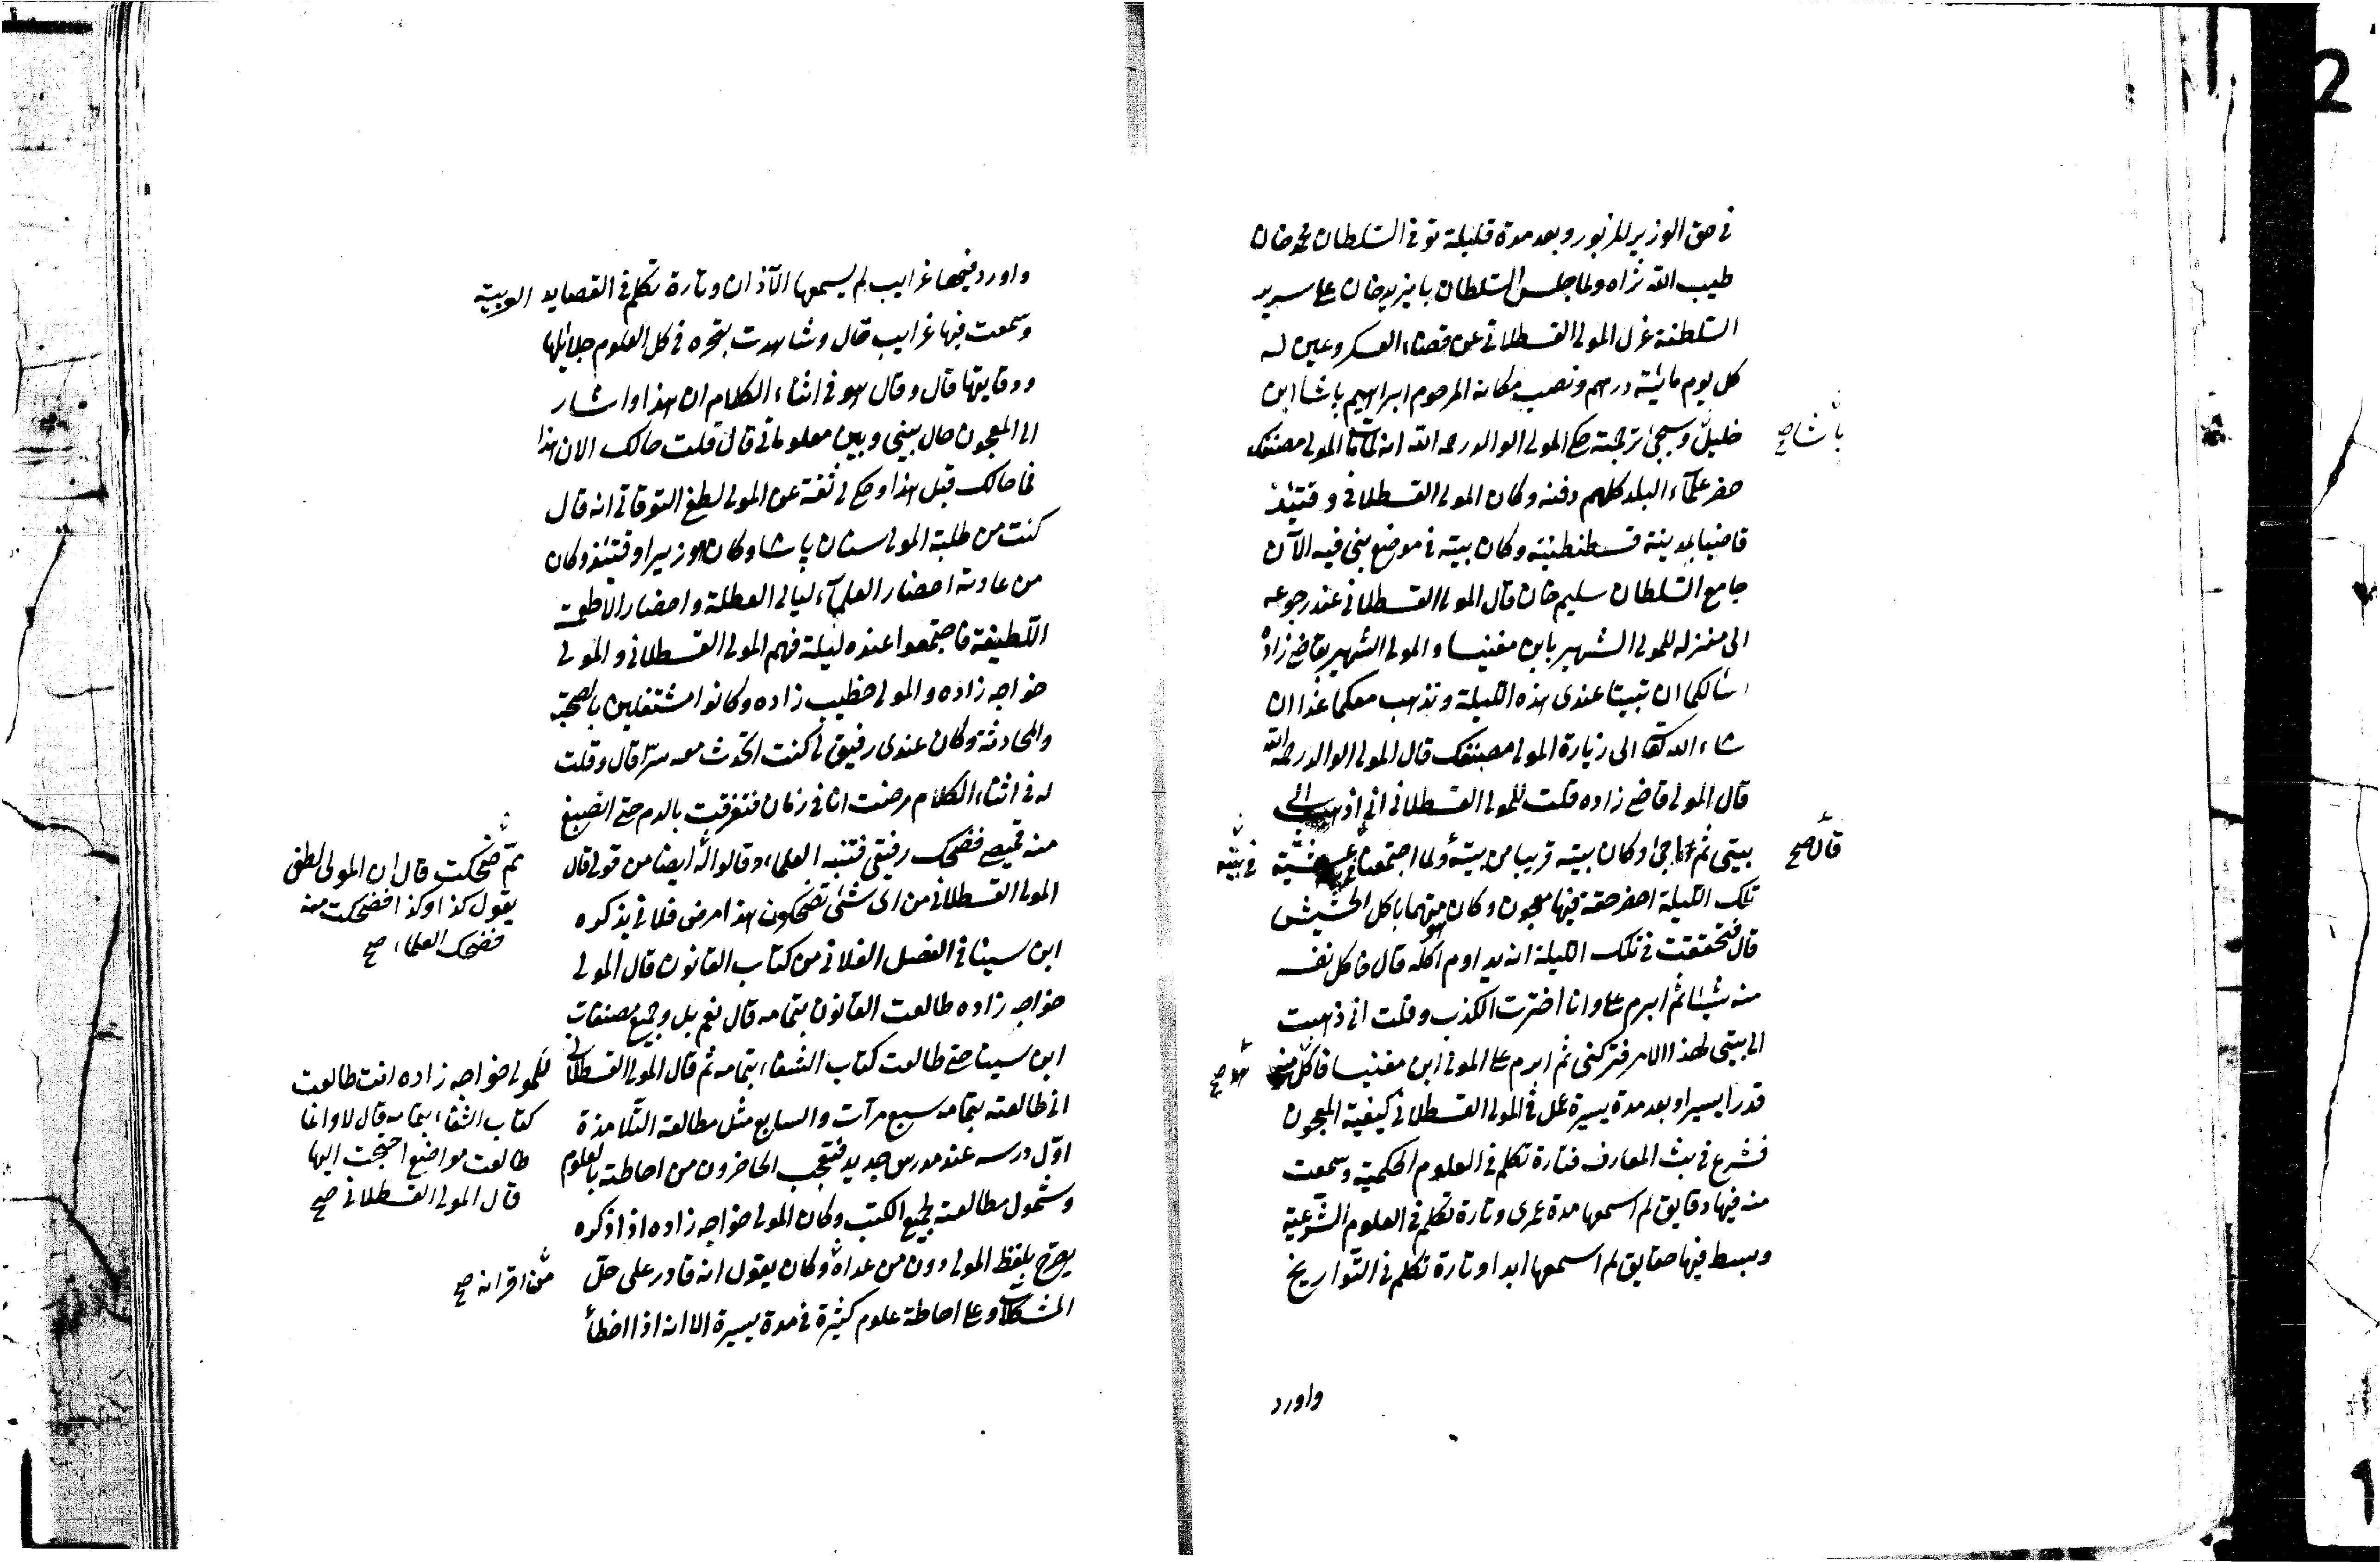 في حق الوزير المزبور وبعد مدة قليلة توفي السلطان محمد خان
طيب الله ثراه ولما جلس السلطان بايزيد خان على سرير
السلطنة عزل المولى القسطلاني عن قضاء العسكر وعين له
كل يوم مائة درهم ونصب مكانه المرحوم ابراهيم باشا ابن
خليل وسيجئ ترجمته حكى المولى الوالد رحمه الله انه لما مات المولى مصنفك
باشا صح
حضر علماء البلد كلهم دفنه وكان المولى القسطلاني وقتئذ
قاضيا بمدينة قسطنطنية وكان بيته في موضع بني فيه الآن
جامع السلطان سليم خان قال المولى القسطلاني عند رجوعه
الى منزله للمولى الشهير بابن مغنيسا والمولى الشهير بقاضي زاده
اسالكما ان تبيتا عندى هذه الليلة ونذهب معكما غدا ان
شاء الله تعالى الى زيارة المولى مصنفك قال المولى الوالد رحمه الله
قال المولى قاضي زاده قلت للمولى القسطلاني اني اذهب الى
بيتي ثم اجئ وكان بيته قريبا من بيته ولما اجتمعنا عشية
قال صح
في بيته
تلك الليلة احضر حقة فيها معجون وكان متهما باكل الحشيش
قال فتحققت في تلك الليلة انه يداوم اكله قال فاكل نفسه
منه شيئا ثم ابرم على وانا اخترت الكذب وقلت اني ذهبت
الى بيتي لهذا الامر فتركني ثم ابرم على المولى ابن مغنيسا فاكل منه
هو صح
قدرا يسيرا وبعد مدة يسيرة عمل في المولى القسطلاني كيفية المعجون
فشرع في بث المعارف فتارة تكلم في العلوم الحكمية وسمعت
منه فيها دقايق لم اسمعها مدة عمرى وتارة تكلم في العلوم الشرعية
وبسط فيها حقايق لم اسمعها ابدا وتارة تكلم في التواريخ
واورد
واورد فيها غرايب لم يسمعها الآذان وتارة تكلم في القصايد العربية
وسمعت فيها غرايب قال وشاهدت بتحره في كل العلوم جلائلها
ودقايقها قال وقال هو في اثناء الكلام ان هذا واشار
الى المعجون حال بيني وبين معلوماتي قال قلت حالك الان هذا
فما حالك قبل هذا وحكى لي ثقة عن المولى لطفي التوقاتي انه قال
كنت من طلبة المولى سنان پاشا وكان هو وزيرا وقتئذ وكان
من عادته احضار العلماء ليالي العطلة واحضار الاطعمة
اللطيفة فاجتمعوا عنده ليلة فهم المولى القسطلاني والمولى
خواجه زاده والمولى خطيب زاده وكانوا مشتغلين بالصحبة
والمحادثة وكان عندى رفيق لي كنت اتحدث معه سرا قال وقلت
له في اثناء الكلام مرضت انا في زمان فتعرقت بالدم حتى انصبغ
منه قميصي فضحك رفيقي فتنبه العلماء وقالوا له ايضا من قولي قال
ثم ضحكت قال ان المولى لطفي
يقول كذا وكذا فضحكت منه
فضحك العلماء صح
المولى القسطلاني من اى شئ تضحكون هذا مرض فلاني يذكره
ابن سينا في الفصل الفلاني من كتاب القانون قال المولى
خواجه زاده طالعت القانون بتمامه قال نعم بل وجميع تصنفات
ابن سينا حتى طالعت كتاب الشفاء بتمامه ثم قال المولى القسطلاني
للمولى خواجه زاده انت طالعت
كتاب الشفاء بتمامه قال لا وانما
طالعت مواضع احتجت اليها
قال المولى القسطلاني صح
اني طالعته بتمامه سبع مرآت والسابع مثل مطالعة التلامذة
اول درسه عند مدرس جديد فتعجب الحاضرون من احاطته بالعلوم
وشمول مطالعته لجميع الكتب وكان المولى خواجه زاده اذا ذكره
يصرح بلفظ المولى دون من عداه وكان يقول انه قادر على حل
من اقرانه صح
المشكلات وعلى احاطة علوم كثيرة في مدة يسيرة الا انه اذا اخطأ